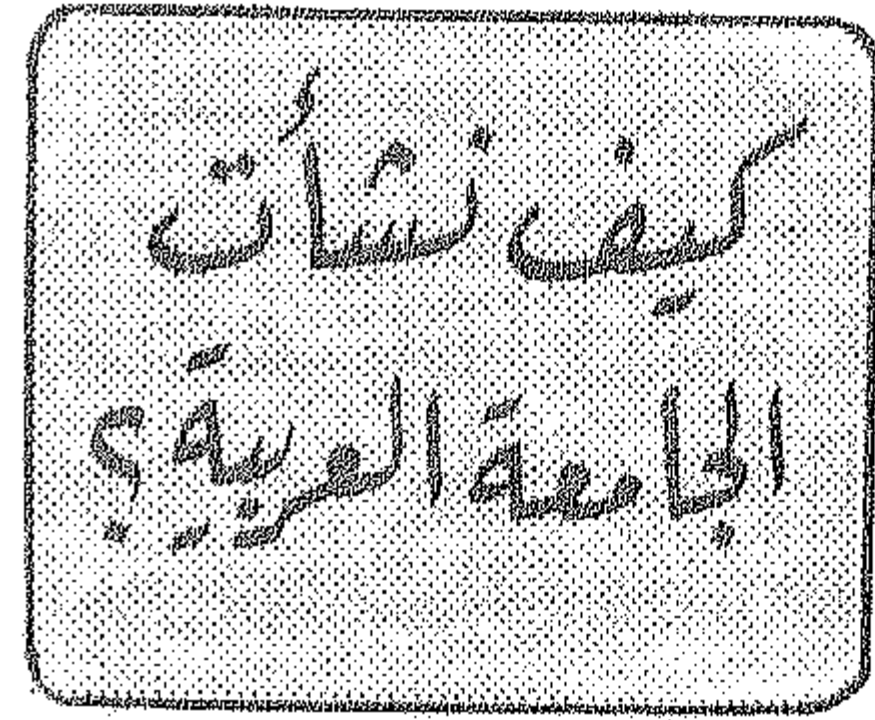 كيف نشأت
الجامعة العربية ؟